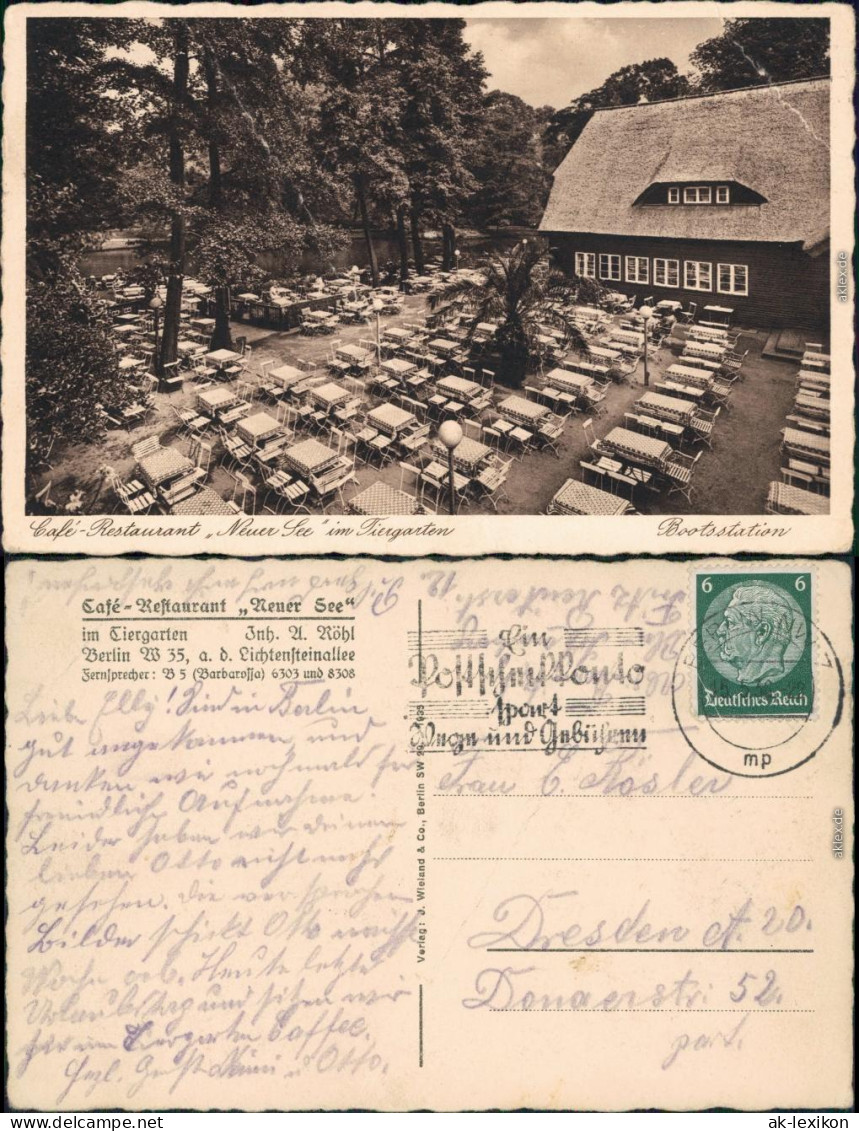 Café-Restaurant „Neuer See" im Tiergarten Bootsstation
Café-Restaurant „Neuer See"
im Tiergarten Inh. A. Röhl
Berlin W 35, a. d. Lichtensteinallee
Fernsprecher: B 5 (Barbarossa) 6303 und 8308
Liebe Elly! Sind in Berlin
gut angekommen und
danken wir nochmals für
freundliche Aufnahme.
Leider haben wir deinen
lieben Otto nicht mehr
gesehen. Die versprochenen
Bilder schickt Otto nächste
Woche. Heute letzter
Urlaubstag und sitzen wir
im Tiergarten Caffee.
Herzl. Gruß Mimi u Otto.
Verlag: J. Wieland & Co., Berlin SW 1935
Ein
Postscheckkonto
spart
Wege und Gebühren
6 6
Deutsches Reich
BERLIN W
mp
Frau E. Rösler
Dresden A. 20.
Donaerstr. 52.
part.
aklex.de
aklex.de
www.ak-lexikon.de
ak-lexikon